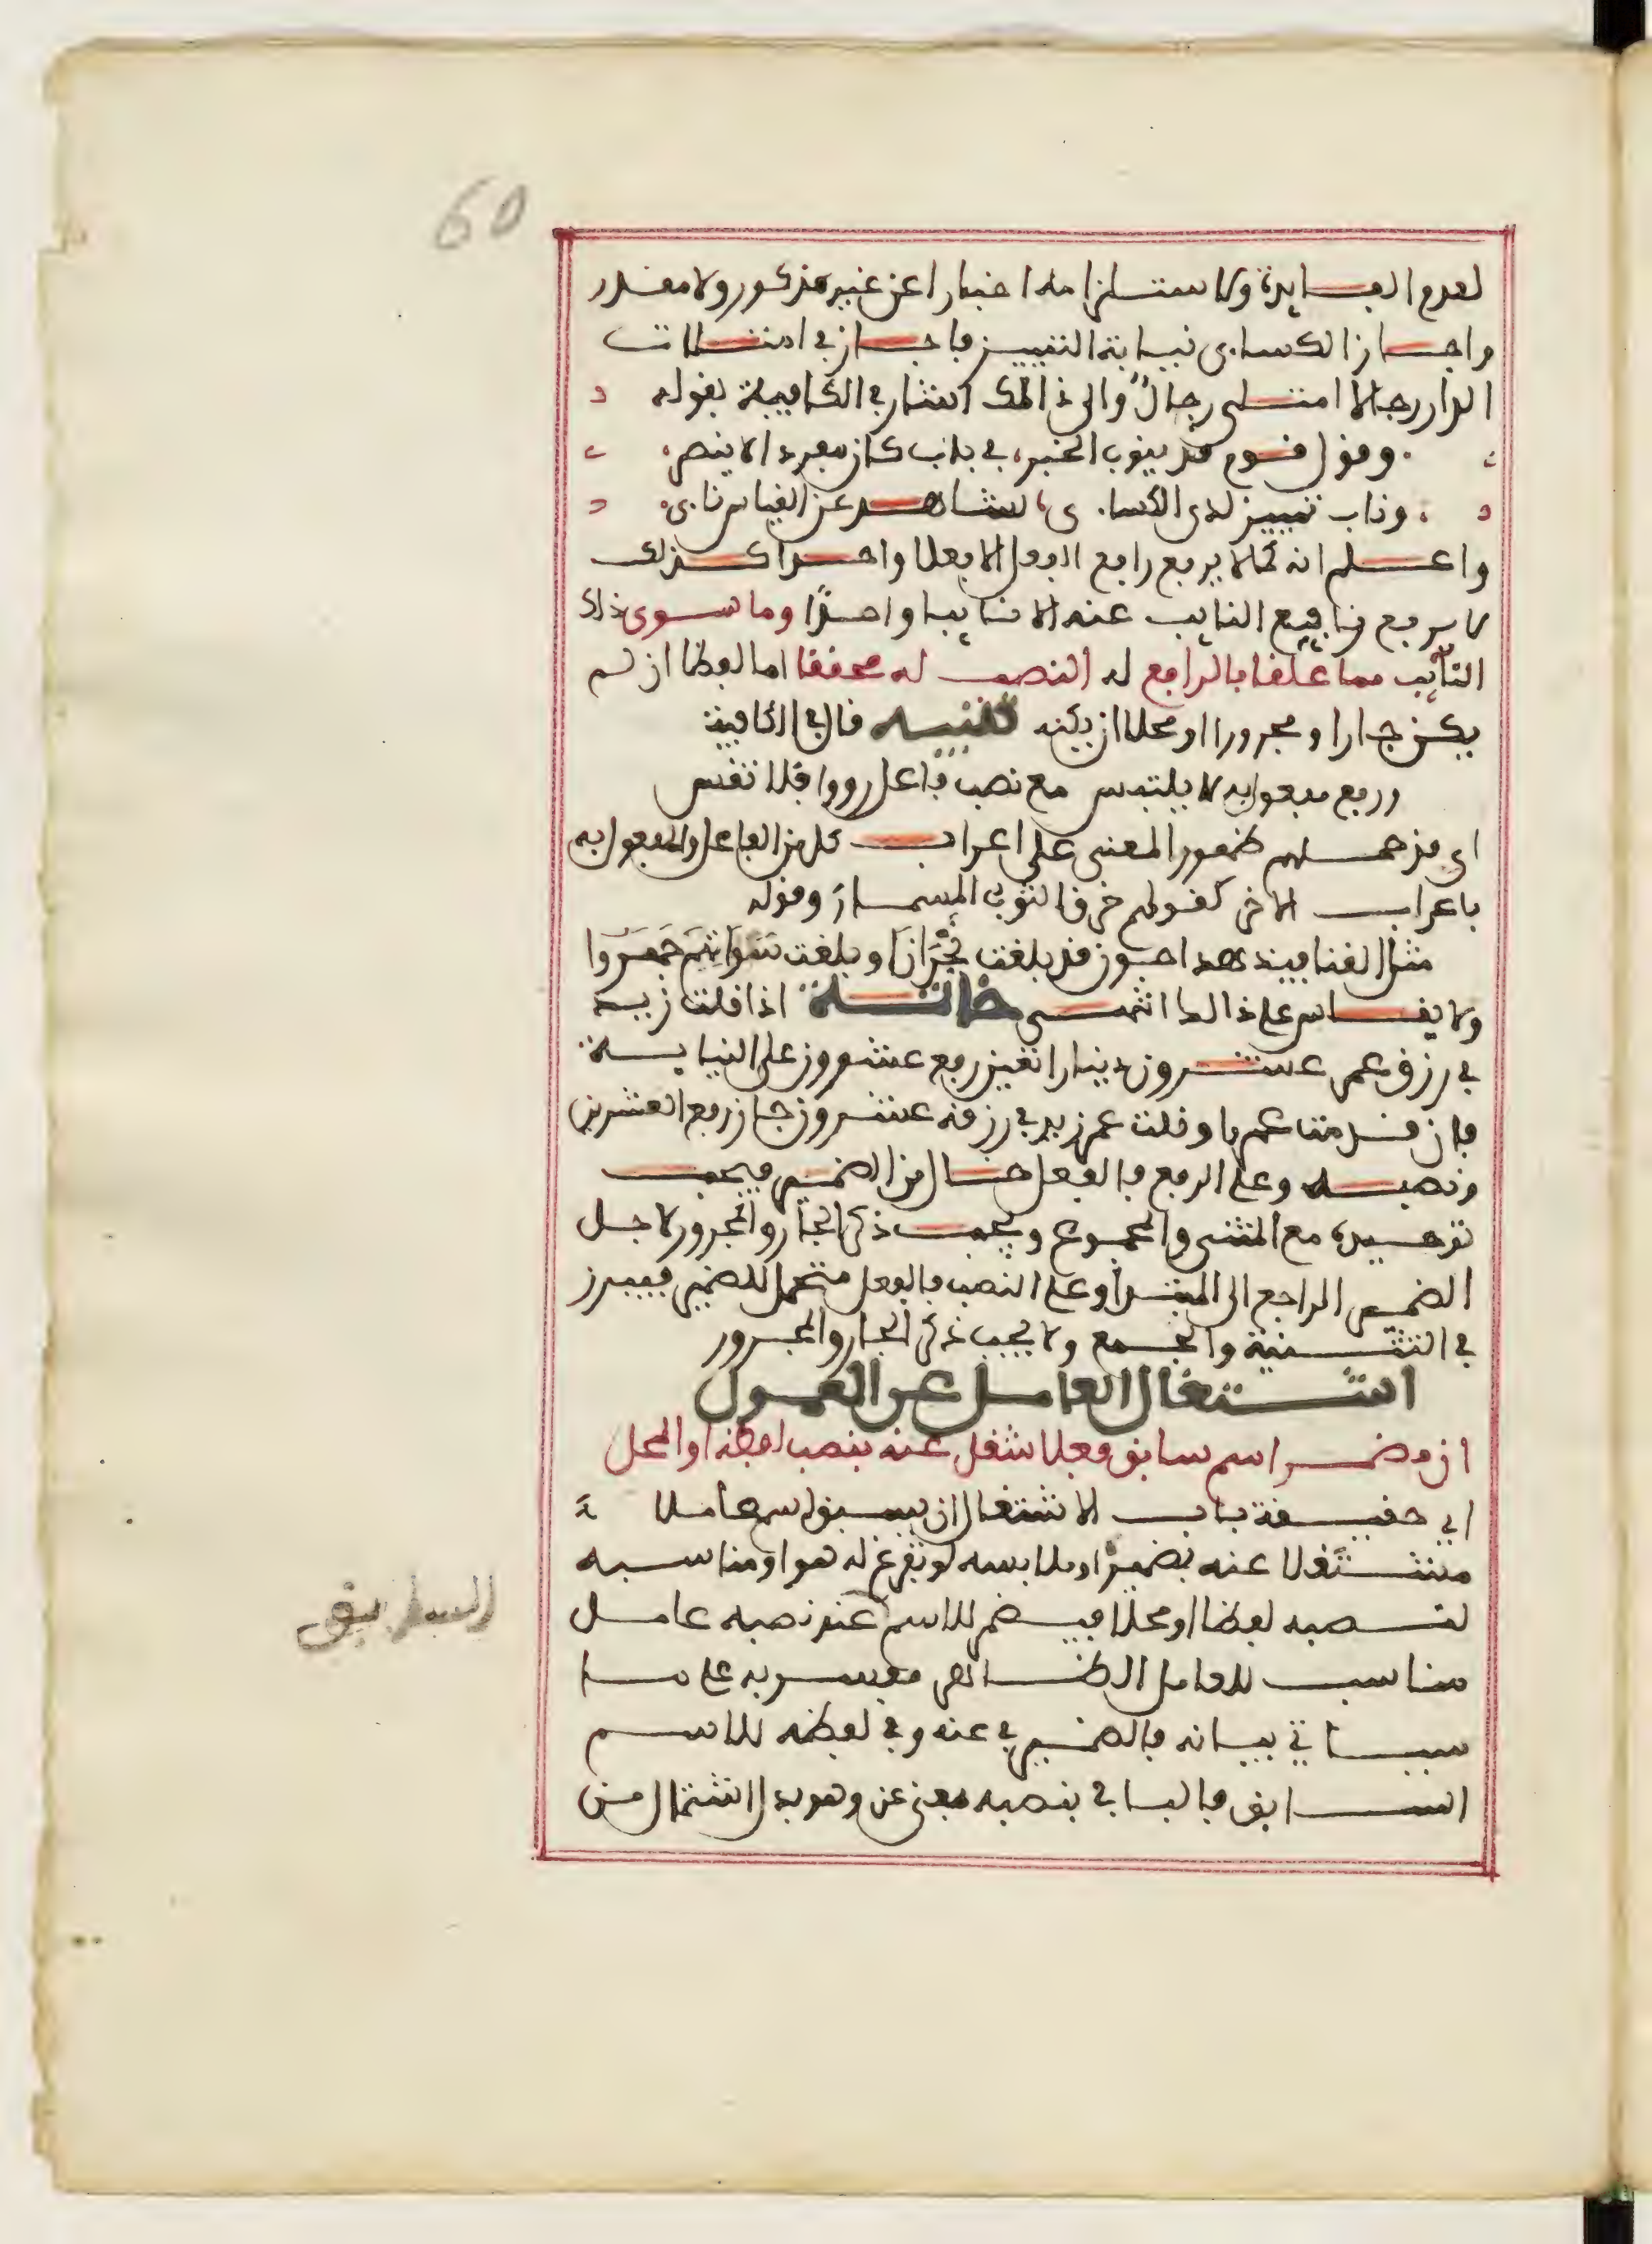 60
لعدم الفايدة ولاستلزامه اخبارا عن غير مذكور ولا مقدر
واجاز الكساءى نيابة التمييز فاجاز في امتلات
الدار رجالا امتلى رجالٌ والى ذالك اشار في الكافية بقوله
وقول قوم قد ينوب الخبر، في باب كان مفردا لا ينصر
وناب تمييز لدى الكساءى، لشاهد عن القياس ناءى
واعلم انه كما لا يرفع رافع الفعل الا فعلا واحدا كذلك
لا يرفع رافع النايب عنه الا نايبا واحدًا وما سوى ذلك
النايب مما علقا بالرافع له النصب له محققا اما لفظا ان لم
يكن جارا ومجرورا او محلا ان يكنه تنبيه قال في الكافية
ورفع مفعول به لا يلتبس مع نصب فاعل رووا فلا تقس
اى قد حملهم ظهور المعنى على اعراب كل من الفاعل والمفعول به
باعراب الاخر كقولهم خرق الثوب المسمار وقوله
مثل القنافيذ هداجون قد بلغت نجران او بلغت سواتهم هجر وا
ولا يقاس على ذالك انتهى خاتمة اذا قلت زيد
في رزق عمر عشرون دينارا تعين رفع عشرون على النيابة
فان قدمت عمرا وقلت عمر زيد في رزقه عشرون جاز رفع العشرين
ونصبه وعلى الرفع فالفعل خال من الضمير فيجب
توحيده مع المثنى والمجموع ويجب ذكر الجار والمجرور لاجل
الضمير الراجع الى المبتدأ وعلى النصب فالفعل متحمل للضمير فيبرز
في التثنية والجمع ولا يجب ذكر الجار والمجرور
اشتغال العامل عن المعمول
ان مضمر اسم سابق فعلا شغل عنه بنصب لفظه او المحل
اى حقيقة باب الاشتغال ان يسبق اسم عاملا
مشتغلا عنه بضميره او ملابسه لو تفرغ له هو او مناسبه
لنصبه لفظا او محلا فيضمر للاسم عند نصبه عامل
مناسب للعامل الظاهر مفسر به على ما
سياتي بيانه فالضمير في عنه وفي لفظه للاسم
السابق
السابق فالبا في بنصبه بمعنى عن وهو بدل اشتمال من